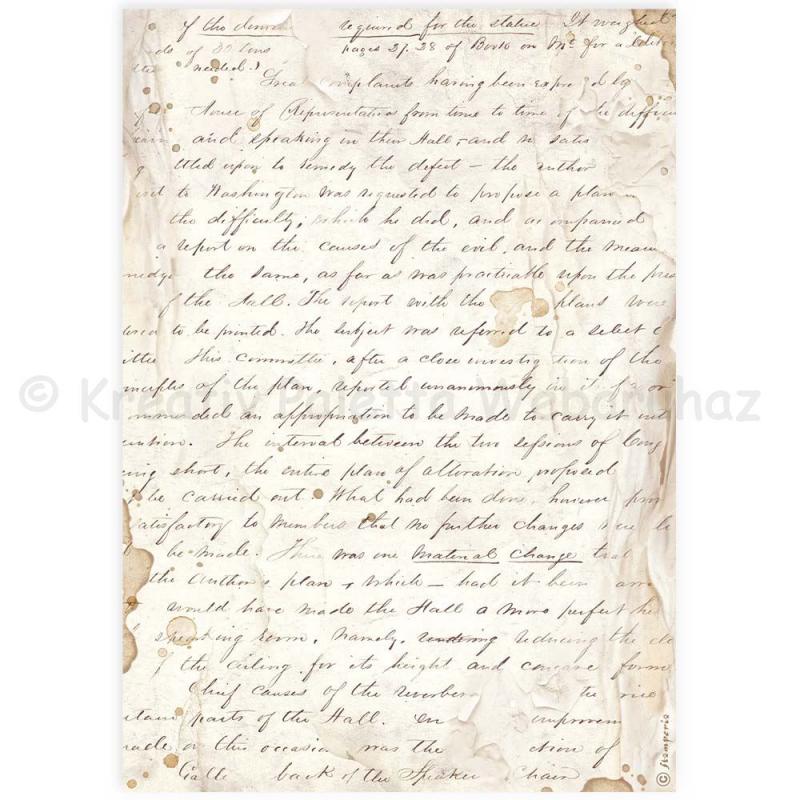 of the required for the statue It weighed
of 20 tons pages 27. 28 of Book on for a
needed.)
Great complaints having been expressed by
House of Representatives from time to time of the difficul
and speaking in their Hall, and no satis
ttled upon to remedy the defect – the author
to Washington was requested to propose a plan
the difficulty; which he did, and accompanied
a report on the causes of the evil, and the mean
medy the same, as far as was practicable upon the
of the Hall. The report with the plans were
to be printed. The subject was referred to a select c
ittee This committee, after a close investigation of the
inciples of the plan, reported unanimously in it
ommended an appropriation to be made to carry it int
The interval between the two sessions of Cong
ing short, the entire plan of alteration proposed
be carried out. What had been done, however
satisfactory to Members that no further changes
be made. There was one material change that
the author's plan, which – had it been
would have made the Hall a more perfect
speaking room, namely, reducing the
of the ceiling for its height and concave form
Chief causes of the reverbera the
parts of the Hall. improvem
made on this occasion was the ction of
Galle back of the Speaker Chair
© Stamperia
© Kreatív Paletta Webáruház